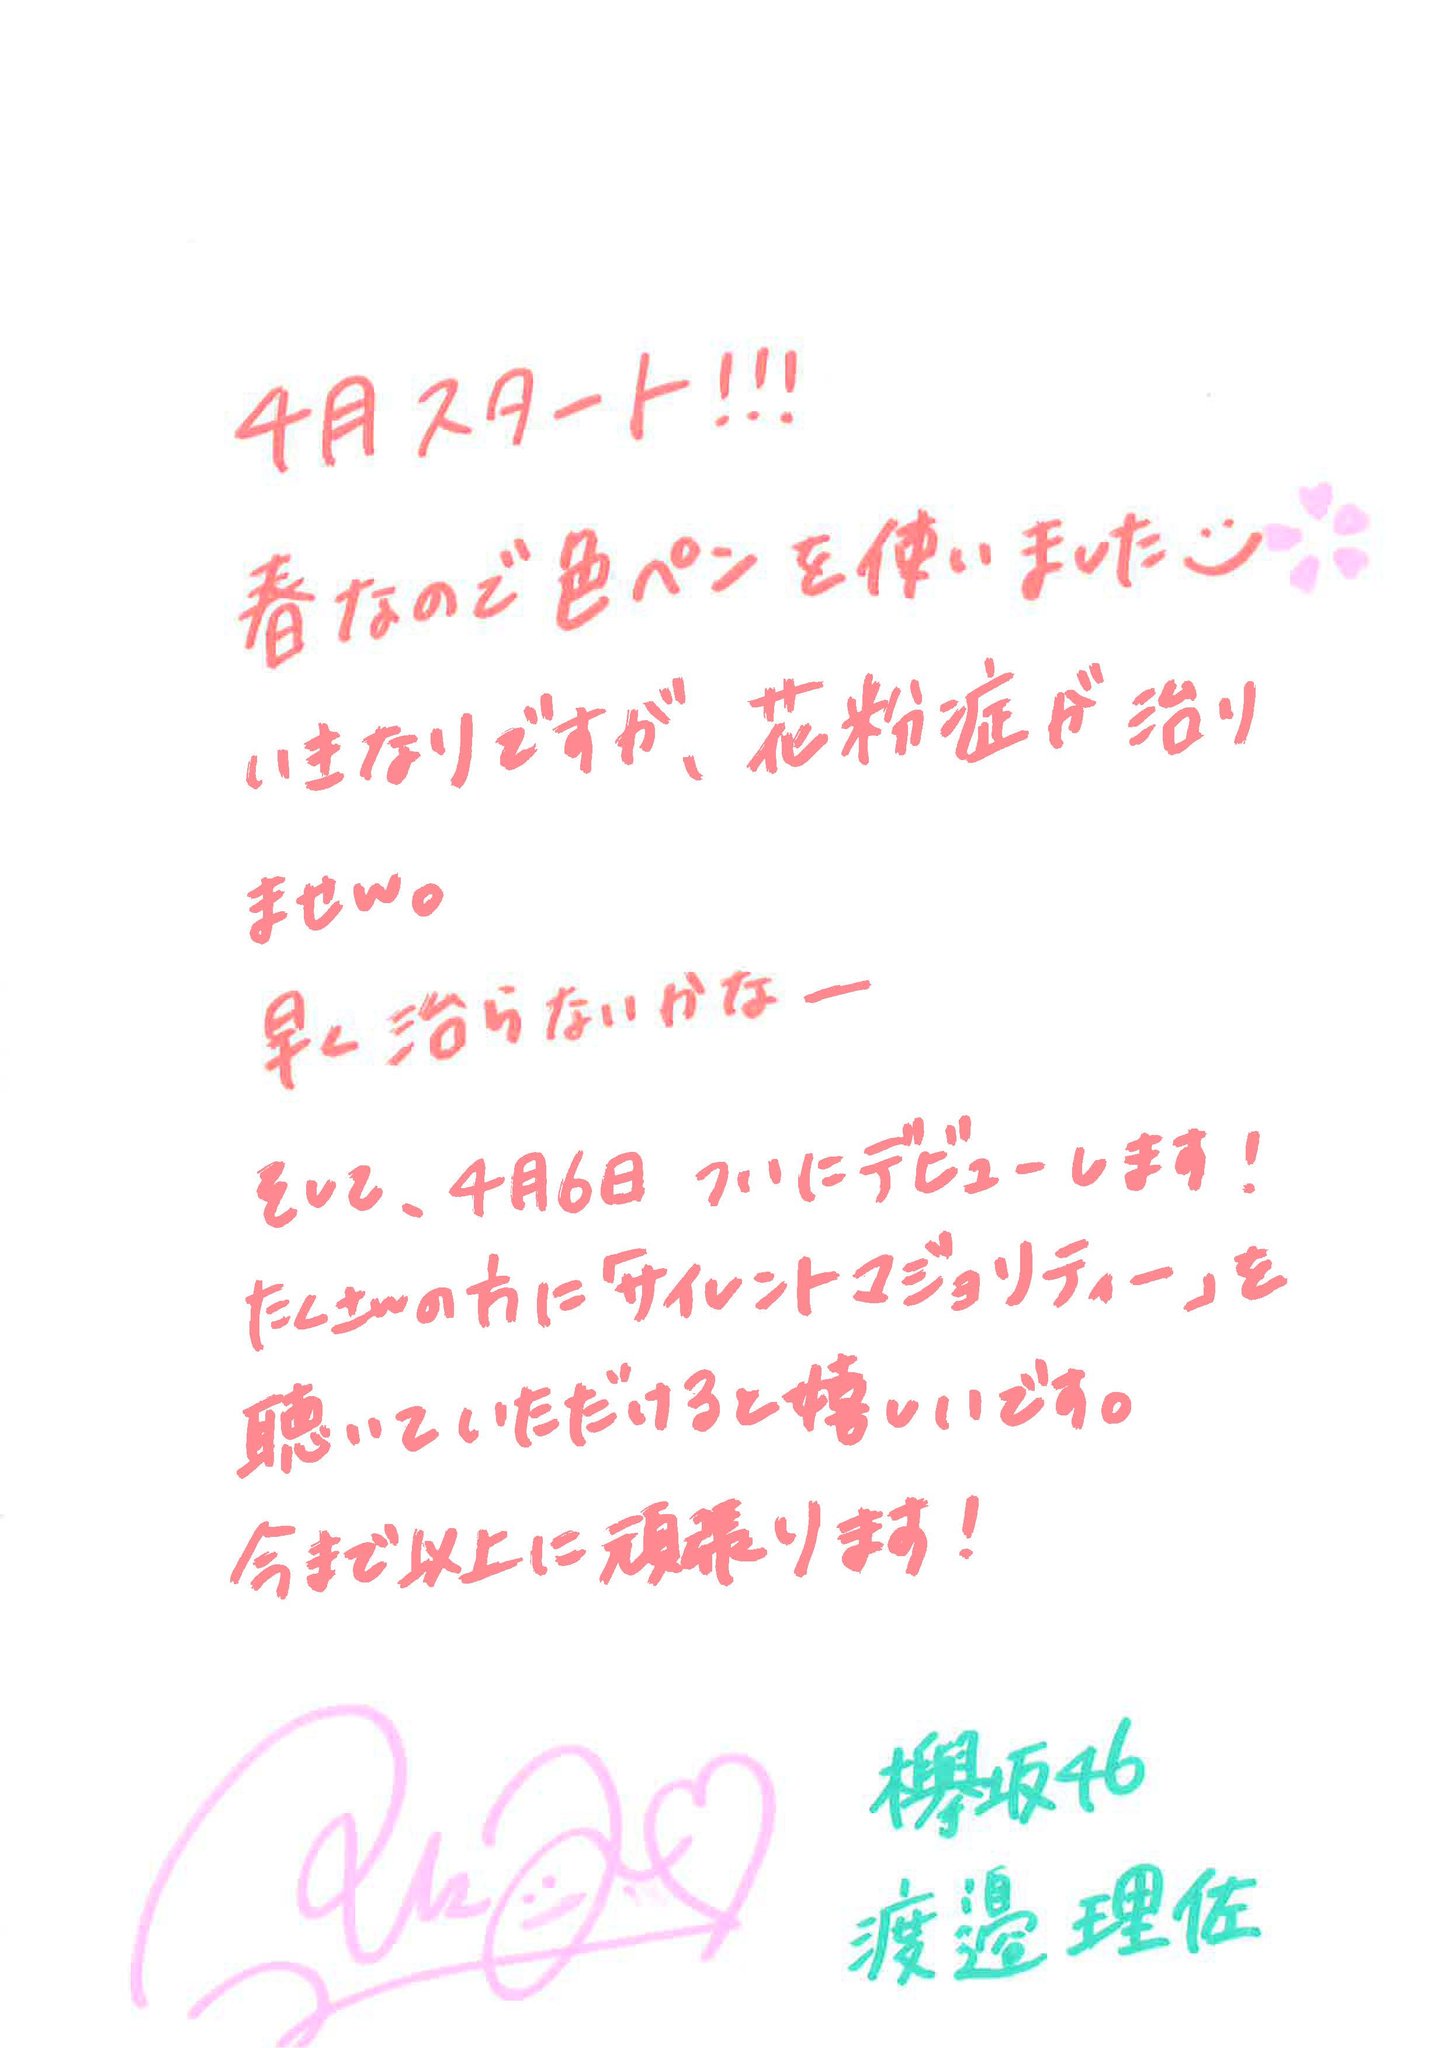 4月スタート!!!
春なので色ペンを使いました
いきなりですが、花粉症が治り
ません。
早く治らないかなー
そして、4月6日 ついにデビューします!
たくさんの方に「サイレントマジョリティー」を
聴いていただけると嬉しいです。
今まで以上に頑張ります!
欅坂46
渡邉理佐